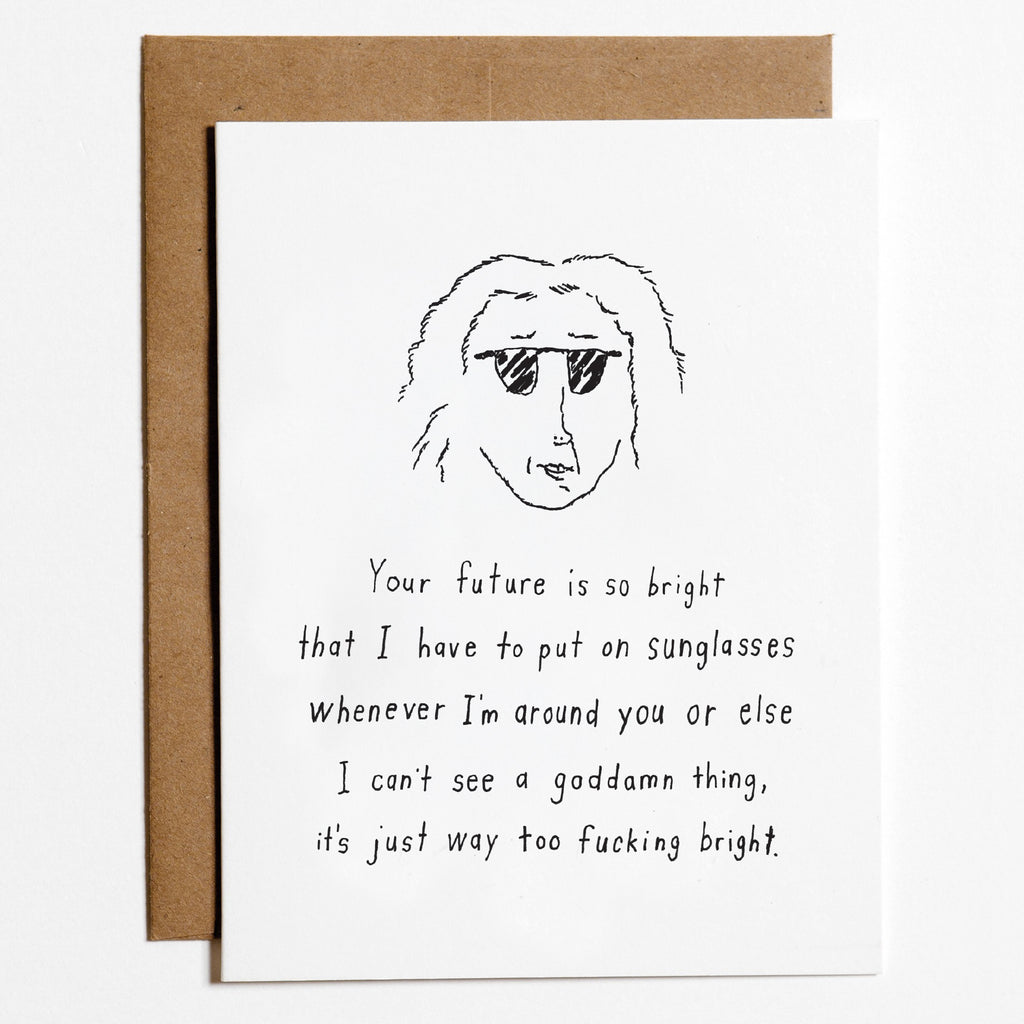 Your future is so bright
that I have to put on sunglasses
whenever I'm around you or else
I can't see a goddamn thing,
it's just way too fucking bright.